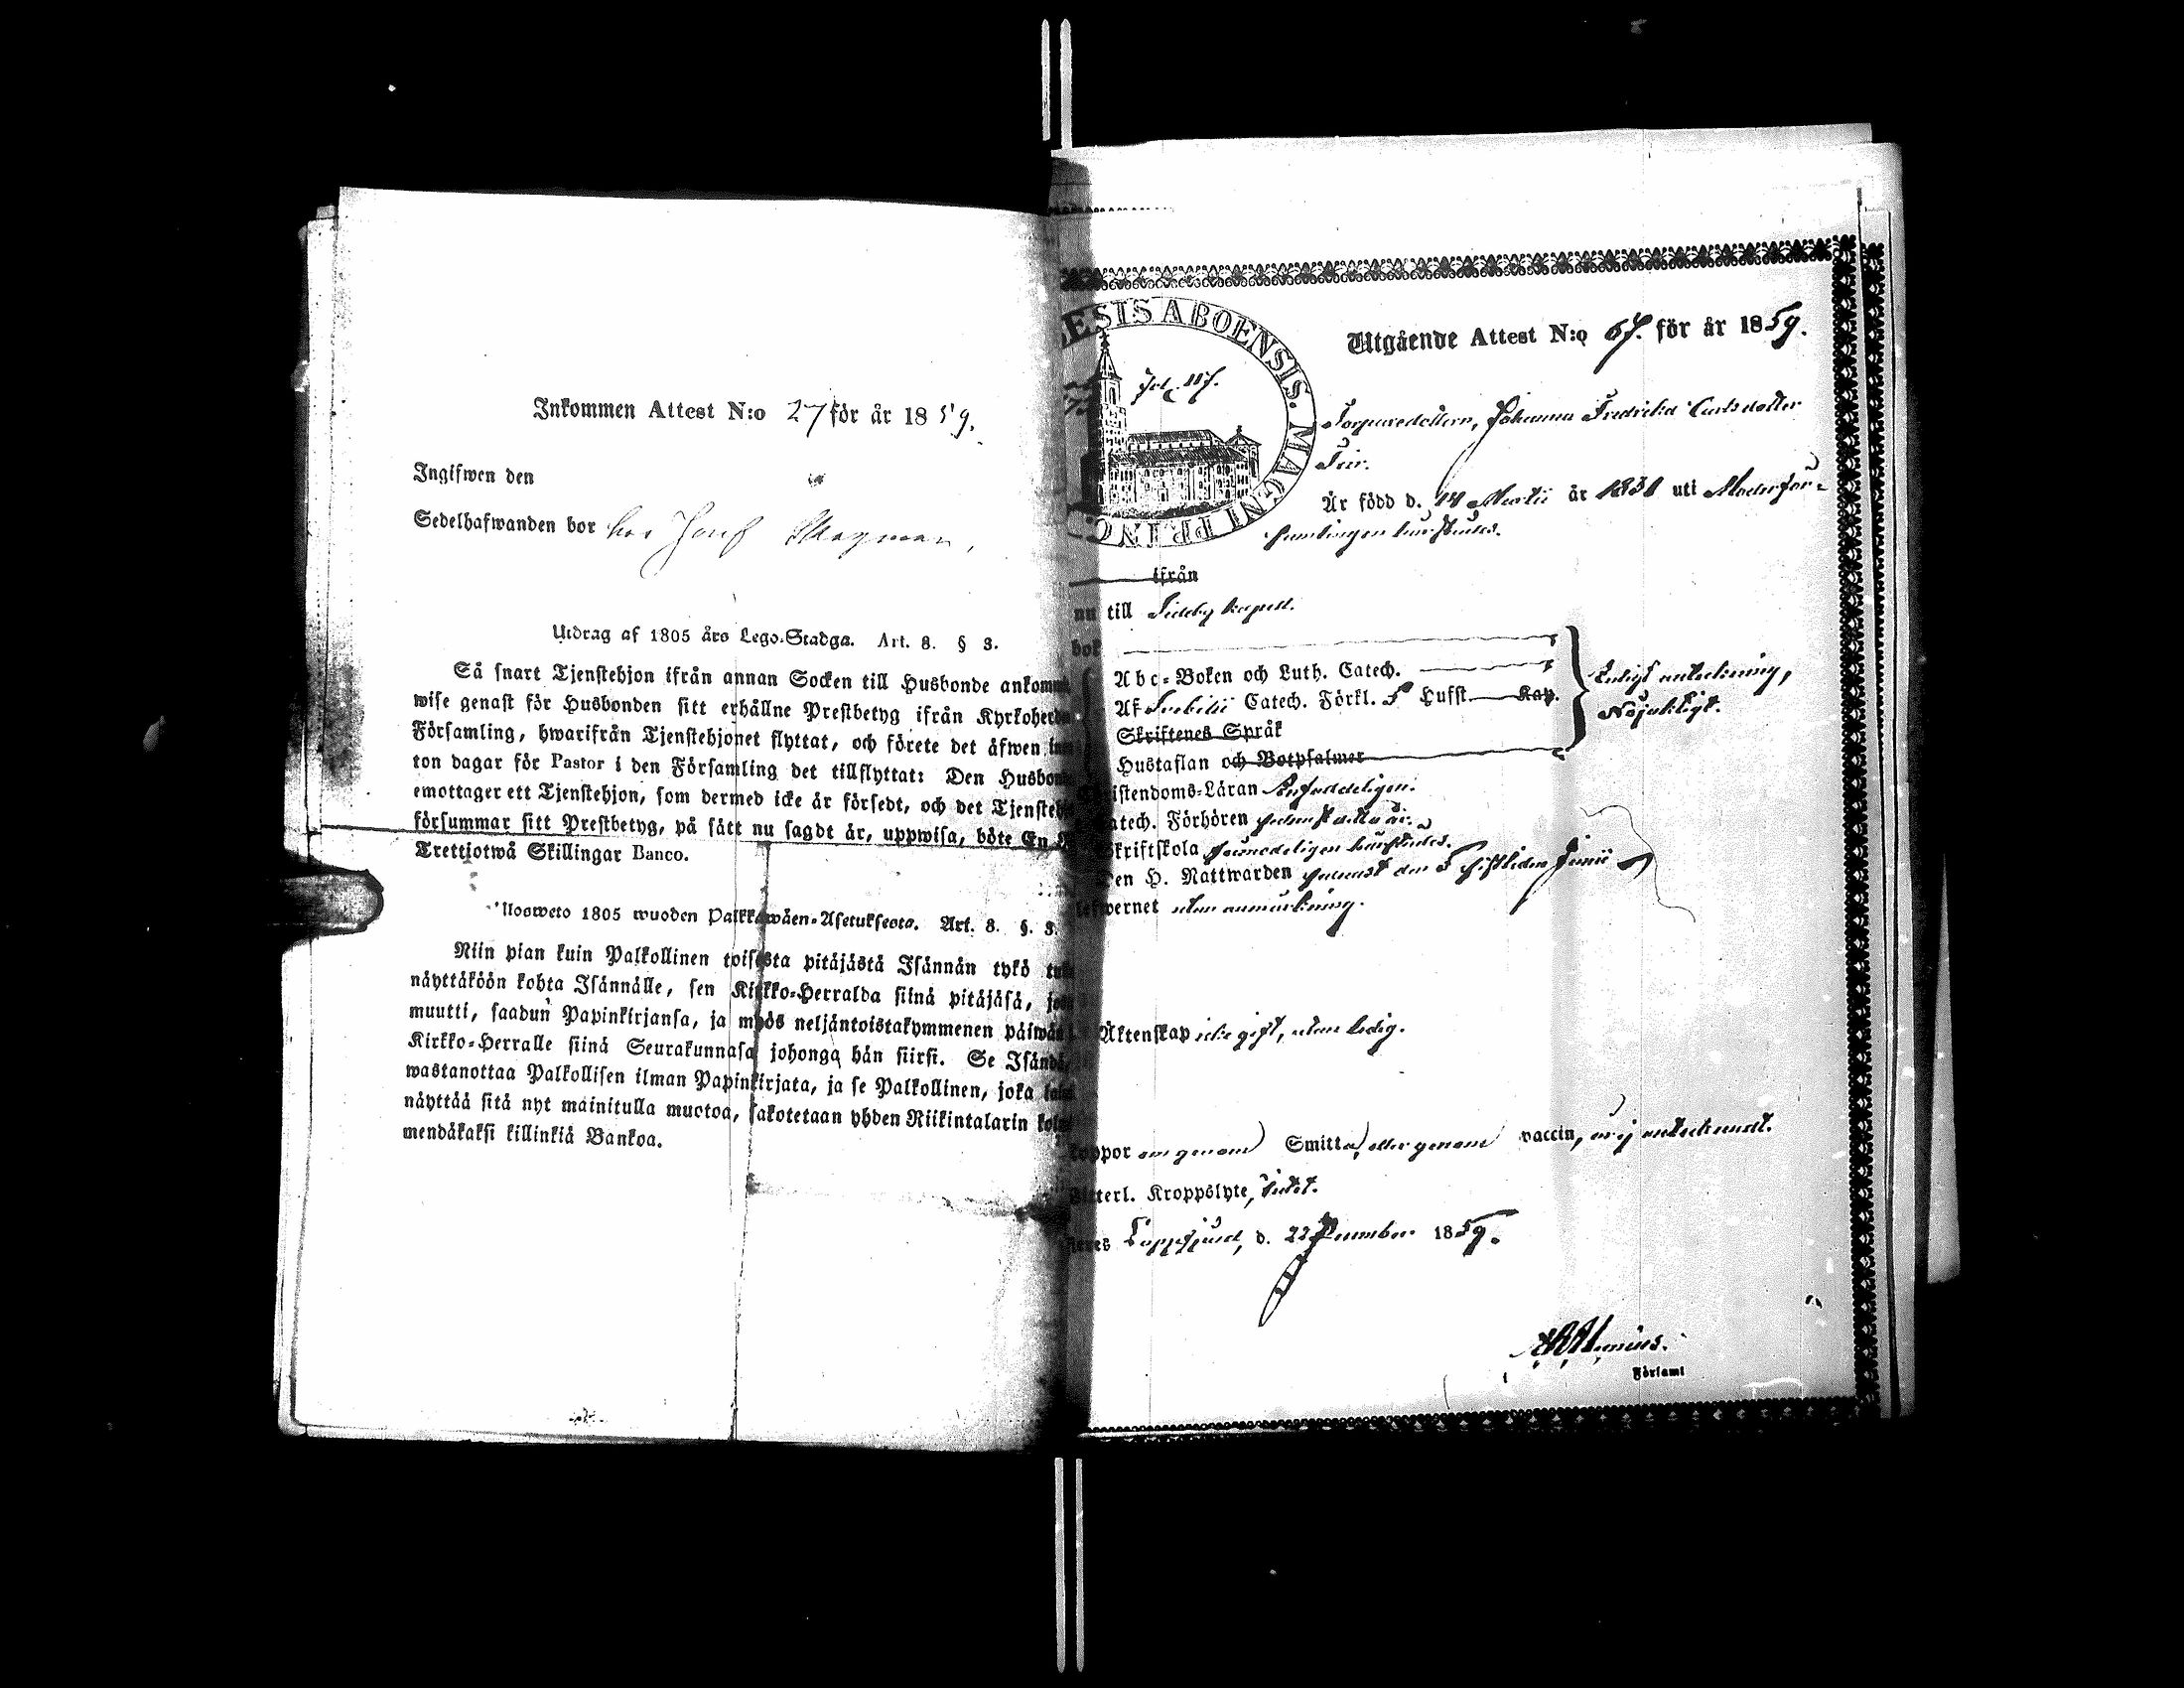 Inkommen Attest N:o 27 för år 1859.
Ingifwen den
Sedelhafwanden bor hos Josef Skogman,
Utdrag af 1805 års Lego-Stadga. Art. 8. § 3.
Så snart Tjenstehjon ifrån annan Socken till Husbonde ankomm
wise genast för Husbonden sitt erhållne Prestbetyg ifrån Kyrkoherd
Församling, hwarifrån Tjenstehjonet flyttat, och förete det äfwen inn
ton dagar för Pastor i den Församling det tillflyttat: Den Husbon
emottager ett Tjenstehjon, som dermed icke är försedt, och det Tjensteh
försummar sitt Prestbetyg, på sätt nu sagdt är, uppwisa, böte En
Trettjotwå Skillingar Banco.
Ulosweto 1805 wuoden Palkkawäen-Asetuksesta. Art. 8. §. 3.
Niin pian kuin Palkollinen toisesta pitäjästä Isännän tykö tul
näyttäköön kohta Isännälle, sen Kirkko-Herralda siinä pitäjäsä, jos
muutti, saadun Papinkirjansa, ja myös neljäntoistakymmenen päiwän
Kirkko-Herralle siinä Seurakunnasa johonga hän siirsi. Se Isändä,
wastanottaa Palkollisen ilman Papinkirjata, ja se Palkollinen, joka lai
näyttää sitä nyt mainitulla muotoa, sakotetaan yhden Riikintalarin kol
mendäkaksi killinkiä Bankoa.
ESIS ABOENSIS. MAGNI PRINC
Utgående Attest N:o 67. för år 1859.
Johanna Fredrika Carlsdotter
Är född d. 14 Martii år 1831 uti Moderför-
samlingen härstädes.
ifrån
nu till Sideby kapell.
bok
Abc-Boken och Luth. Catech.
Af Svebilii Catech. Förkl. 5 Hufst. Kap.
Enligt anteckning,
Nöjaktigt.
Skriftenes Språk
Hustaflan och Botpsalmer
istendoms-Läran Enfaldeligen.
atech. Förhören
Skriftskola härstädes.
Den H. Nattwarden senast den 5 sistliden Junii
lefwernet utan anmärkning.
Äktenskap icke gift, utan ledig.
koppor om genom Smitta, eller genom vaccin, är ej antecknadt.
terl. Kroppslyte, intet.
Lappfjärd, d. 22 December 1859.
Församl